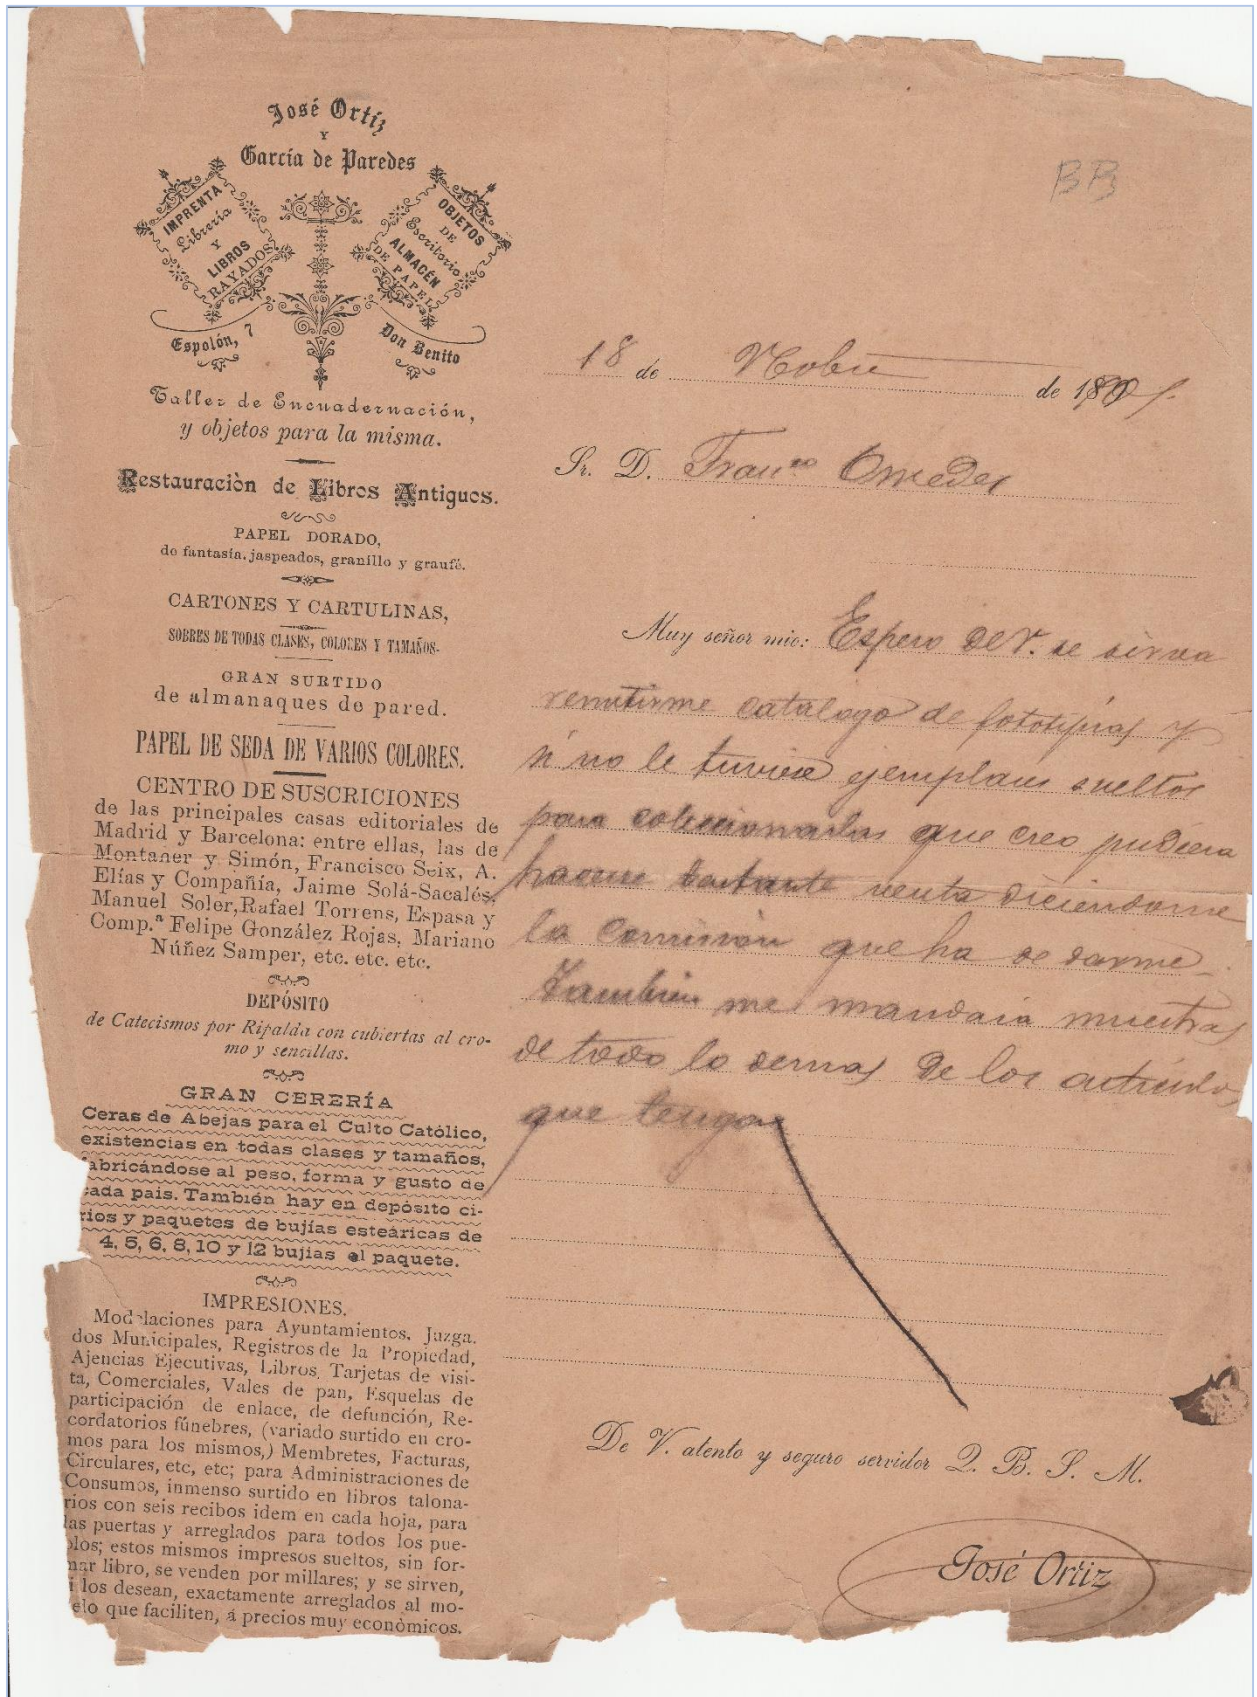 José Ortíz
Y
García de Paredes
IMPRENTA
Librería
Y
LIBROS
RAYADOS
OBJETOS
DE
Escritorio
ALMACÉN
DE PAPEL
Espolón, 7
Don Benito
Taller de Encuadernación,
y objetos para la misma.
Restauraciòn de Libros Antiguos.
PAPEL DORADO,
de fantasía, jaspeados, granillo y graufé.
CARTONES Y CARTULINAS,
SOBRES DE TODAS CLASES, COLORES Y TAMAÑOS.
GRAN SURTIDO
de almanaques de pared.
PAPEL DE SEDA DE VARIOS COLORES.
CENTRO DE SUSCRICIONES
de las principales casas editoriales de
Madrid y Barcelona: entre ellas, las de
Montaner y Simón, Francisco Seix, A.
Elías y Compañía, Jaime Solá-Sacalés,
Manuel Soler, Rafael Torrens, Espasa y
Comp.ª Felipe González Rojas, Mariano
Núñez Samper, etc. etc. etc.
DEPÓSITO
de Catecismos por Ripalda con cubiertas al cro-
mo y sencillas.
GRAN CERERÍA
Ceras de Abejas para el Culto Católico,
existencias en todas clases y tamaños,
fabricándose al peso, forma y gusto de
cada pais. También hay en depòsito ci-
rios y paquetes de bujías esteáricas de
4, 5, 6, 8, 10 y 12 bujías el paquete.
IMPRESIONES.
Modelaciones para Ayuntamientos. Juzga.
dos Municipales, Registros de la Propiedad,
Ajencias Ejecutivas, Libros, Tarjetas de visi-
ta, Comerciales, Vales de pan, Esquelas de
participación de enlace, de defunción, Re-
cordatorios fúnebres, (variado surtido en cro-
mos para los mismos,) Membretes, Facturas,
Circulares, etc, etc; para Administraciones de
Consumos, inmenso surtido en libros talona-
rios con seis recibos idem en cada hoja, para
las puertas y arreglados para todos los pue-
blos; estos mismos impresos sueltos, sin for-
mar libro, se venden por millares; y se sirven,
i los desean, exactamente arreglados al mo-
elo que faciliten, á precios muy económicos.
BB
18 de Nobre de 1901.
Sr. D. Franco Omedes
Muy señor mio: Espero de V. se sirva
remitirme catálogo de fototipias y
si no le tuviese ejemplares sueltos
para coleccionarlas que creo pudiera
hacerse bastante venta diciendome
la Comisión que ha de darme
Tambien me mandará muestras
de todo lo demas de los artículos
que tenga
De V. atento y seguro servidor Q. B. S. M.
José Ortiz